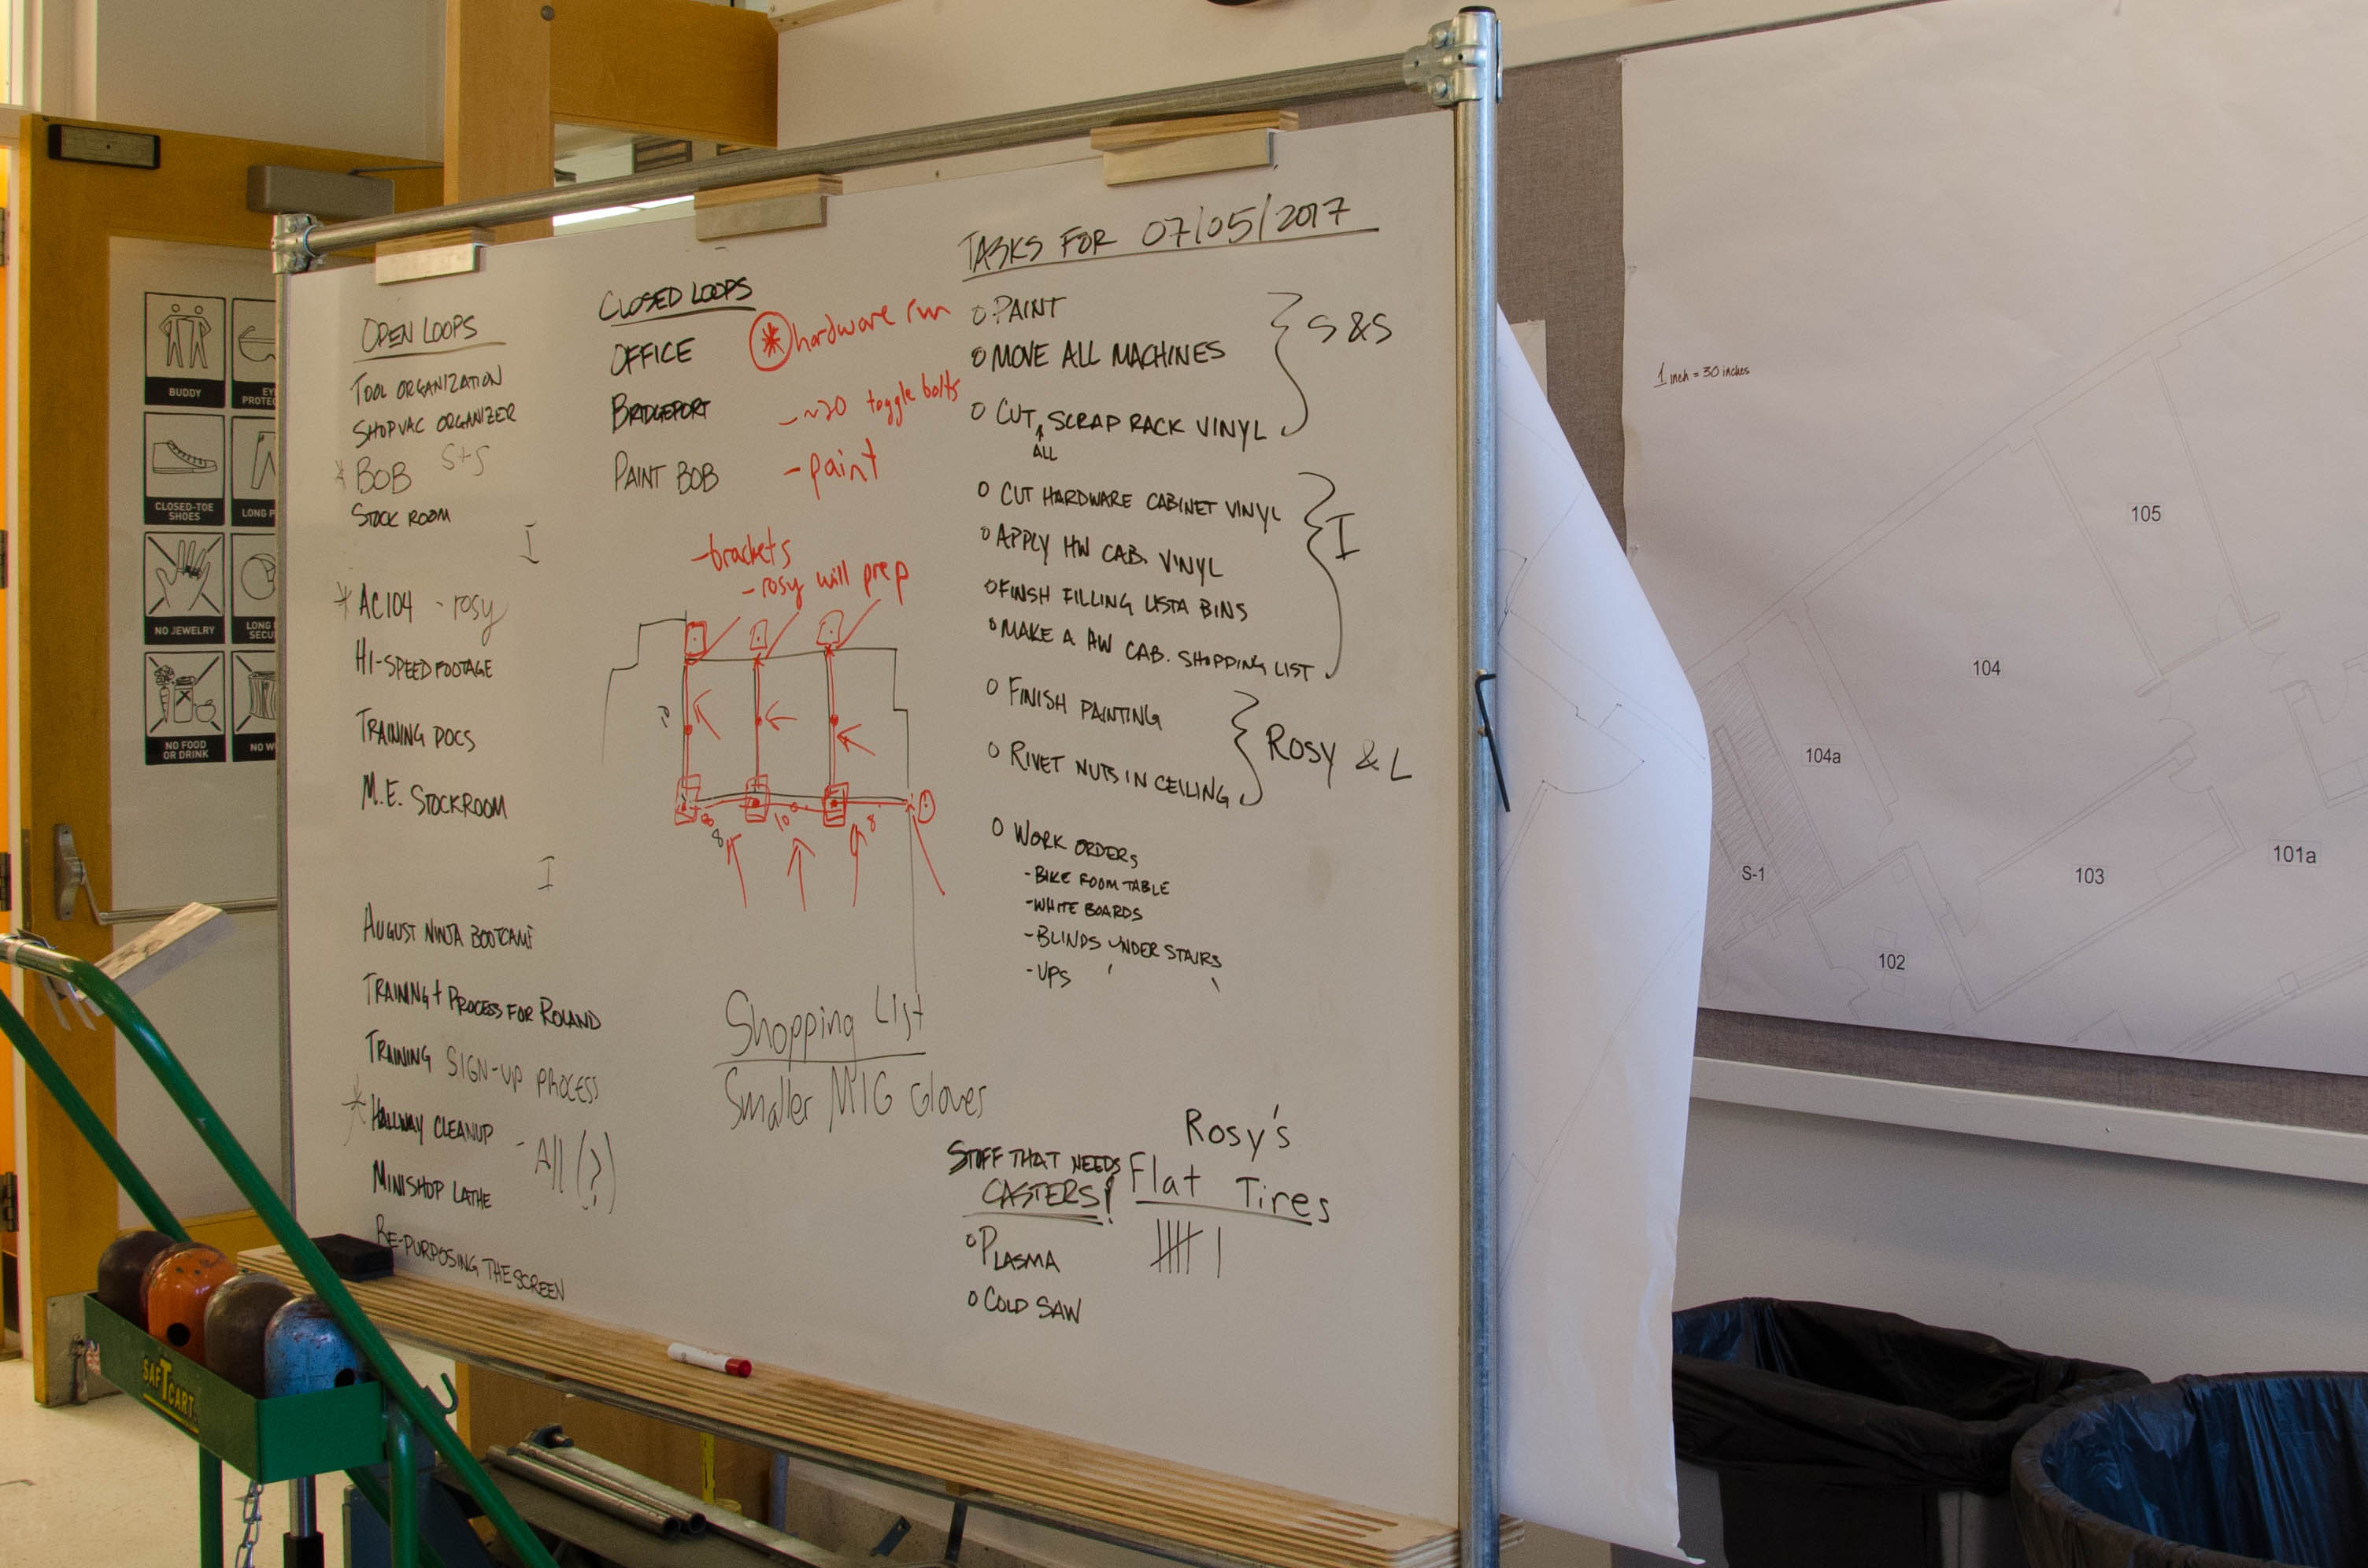 OPEN LOOPS
TOOL ORGANIZATION
SHOPVAC ORGANIZER
* BOB S+S
STOCK ROOM
I
* AC104 - rosy
HI-SPEED FOOTAGE
TRAINING DOCS
M.E. STOCKROOM
I
AUGUST NINJA BOOTCAMP
TRAINING + PROCESS FOR ROLAND
TRAINING SIGN-UP PROCESS
* HALLWAY CLEANUP - All (?)
MINISHOP LATHE
RE-PURPOSING THE SCREEN
CLOSED LOOPS
OFFICE
BRIDGEPORT
PAINT BOB
* hardware run
- ~20 toggle bolts
- paint
- brackets
- rosy will prep
8
10
8
Shopping List
Smaller MIG Gloves
TASKS FOR 07/05/2017
O PAINT
O MOVE ALL MACHINES
O CUT SCRAP RACK VINYL
ALL
S & S
O CUT HARDWARE CABINET VINYL
O APPLY HW CAB. VINYL
O FINSH FILLING LISTA BINS
O MAKE A HW CAB. SHOPPING LIST
I
O FINISH PAINTING
O RIVET NUTS IN CEILING
ROSY & L
O WORK ORDERS
- BIKE ROOM TABLE
- WHITE BOARDS
- BLINDS UNDER STAIRS
- UPS
STUFF THAT NEEDS
CASTERS!
O PLASMA
O COLD SAW
Rosy's
Flat Tires
BUDDY
CLOSED-TOE
SHOES
LONG
NO JEWELRY
LONG
NO FOOD
OR DRINK
SAF T CART
1 inch = 30 inches
105
104
104a
S-1
103
101a
102